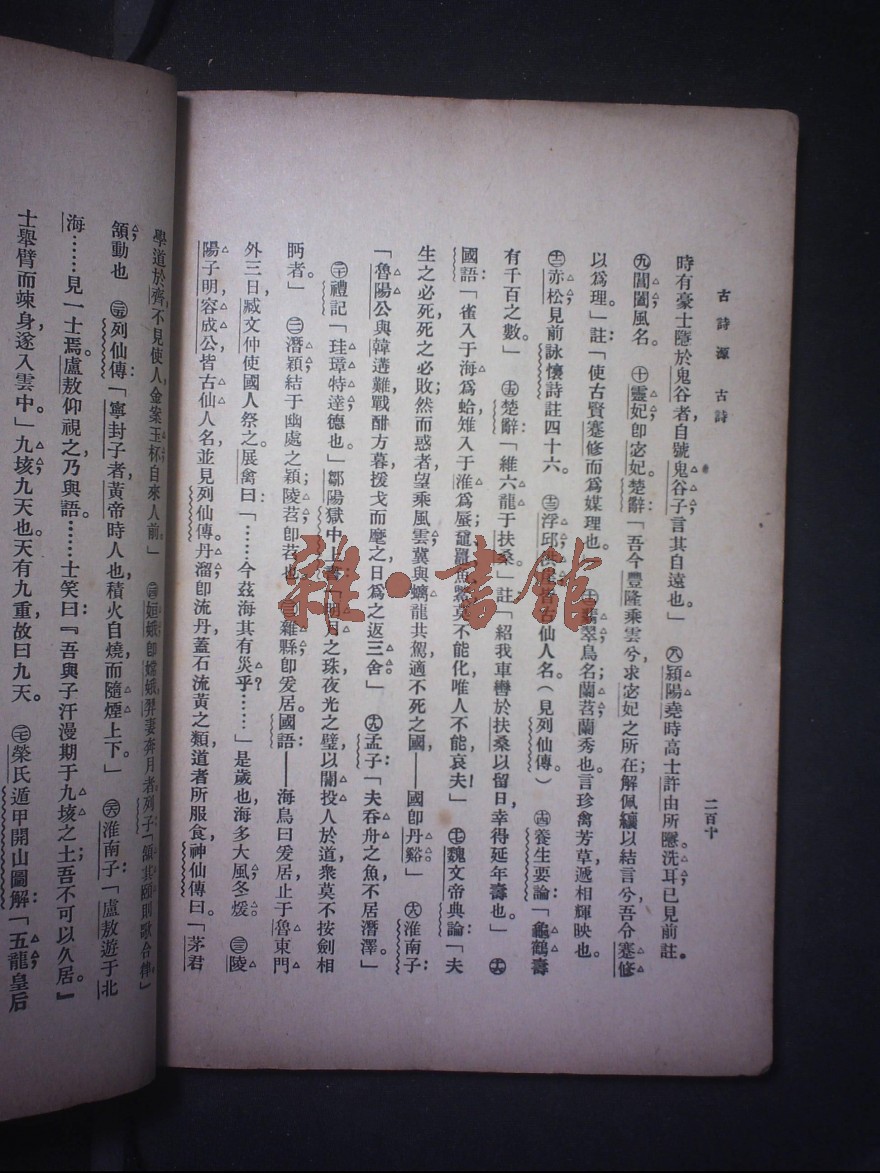 古詩源 古詩
二百十
時有豪士隱於鬼谷者，自號鬼谷子，言其自遠也。」㊇潁陽，堯時高士許由所隱。洗耳，已見前註。
㊈閶闔，風名。㊉靈妃，卽宓妃。楚辭：「吾令豐隆乘雲兮，求宓妃之所在；解佩纕以結言兮，吾令蹇修
以爲理。」註：「使古賢蹇修而爲媒理也。翡翠，鳥名；蘭苕，蘭秀也。言珍禽芳草，遞相輝映也。
赤松，見前詠懷詩註四十六。浮邱，洪崖，皆古仙人名（見列仙傳）養生要論：「龜鶴壽
有千百之數」楚辭：「維六龍于扶桑。」註：「紹我車轡於扶桑以留日，幸得延年壽也。」
國語：「雀入于海爲蛤，雉入于淮爲蜃；黿鼉魚鱉莫不能化，唯人不能哀夫！」魏文帝典論：「夫
生之必死，死之必敗，然而惑者望乘風雲，冀與螭龍共駕，適不死之國——國卽丹谿。」淮南子：
「魯陽公與韓遘難，戰酣方暮，援戈而麾之，日爲之返三舍。」孟子：「夫吞舟之魚，不居潛澤。」
禮記：「珪璋特達，德也。」鄒陽獄中上書：「明月之珠，夜光之璧，以闇投人於道，衆莫不按劍相
眄者。」潛穎，結于幽處之穎；陵苕，卽苕也。雜縣，卽爰居。國語——海鳥曰爰居，止于魯東門
外三日，臧文仲使國人祭之。展禽曰：「……今茲海其有災乎？……」是歲也，海多大風，冬煖。陵
陽子明，容成公，皆古仙人名，並見列仙傳。丹溜，卽流丹，蓋石流黃之類，道者所服食。神仙傳曰：「茅君
學道於齊，不見使人，金案玉杯，自來人前。」姮娥，卽嫦娥，羿妻奔月者。列子：「頷其頤則歌合律。」
頷，動也列仙傳：「寧封子者，黃帝時人也，積火自燒而隨煙上下。」淮南子：「盧敖遊于北
海……見一士焉，盧敖仰視之，乃與語。……士笑曰：『吾與子汗漫期于九垓之上，吾不可以久居。』
士舉臂而竦身，遂入雲中」九垓，九天也。天有九重，故曰九天。榮氏遁甲開山圖解：「五龍，皇后
雜·書館